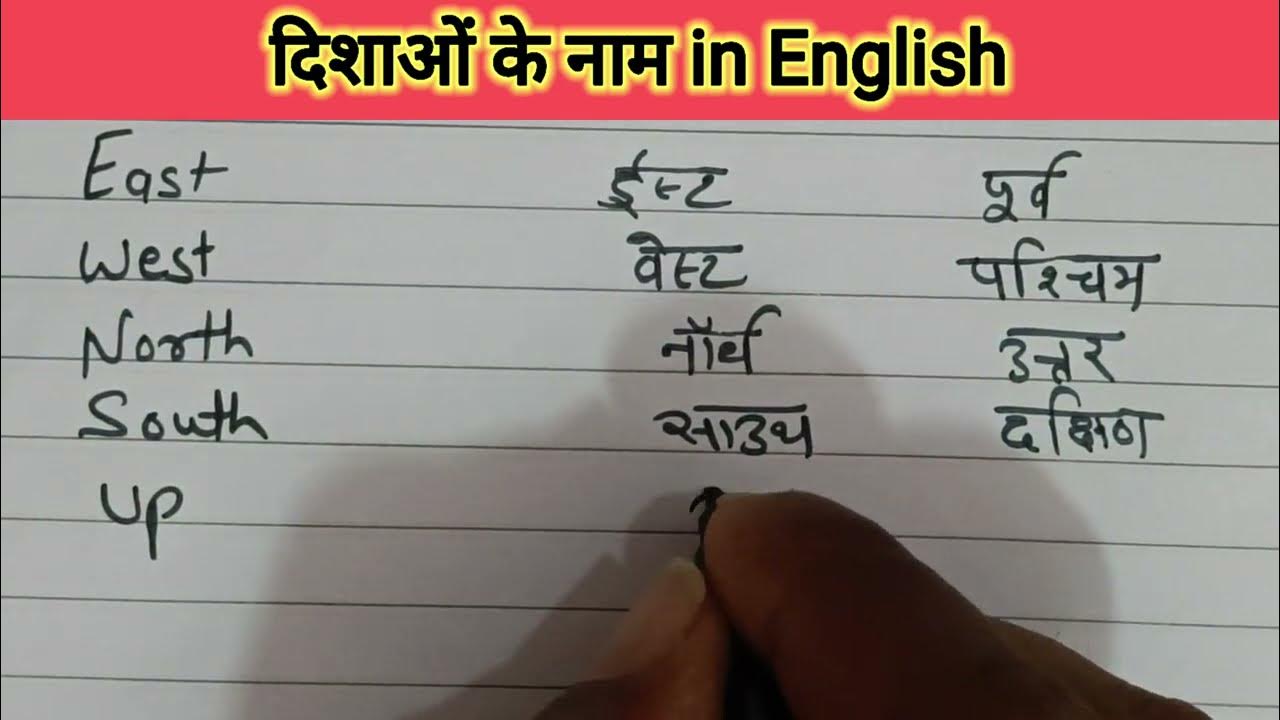 दिशाओं के नाम in English
East ईस्ट पूर्व
West वेस्ट पश्चिम
North नॉर्थ उत्तर
South साउथ दक्षिण
Up